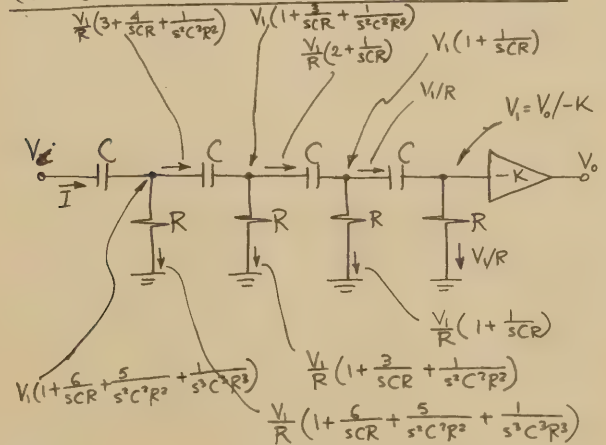 V₁/R (3 + 4/SCR + 1/S²C²R²)
V₁(1 + 3/SCR + 1/S²C²R²)
V₁/R (2 + 1/SCR)
V₁(1 + 1/SCR)
V₁/R
V₁ = V₀/-K
Vi
C
C
C
C
-K
V₀
I
R
R
R
R
V₁/R
V₁/R (1 + 1/SCR)
V₁(1 + 6/SCR + 5/S²C²R² + 1/S³C³R³)
V₁/R (1 + 3/SCR + 1/S²C²R²)
V₁/R (1 + 6/SCR + 5/S²C²R² + 1/S³C³R³)